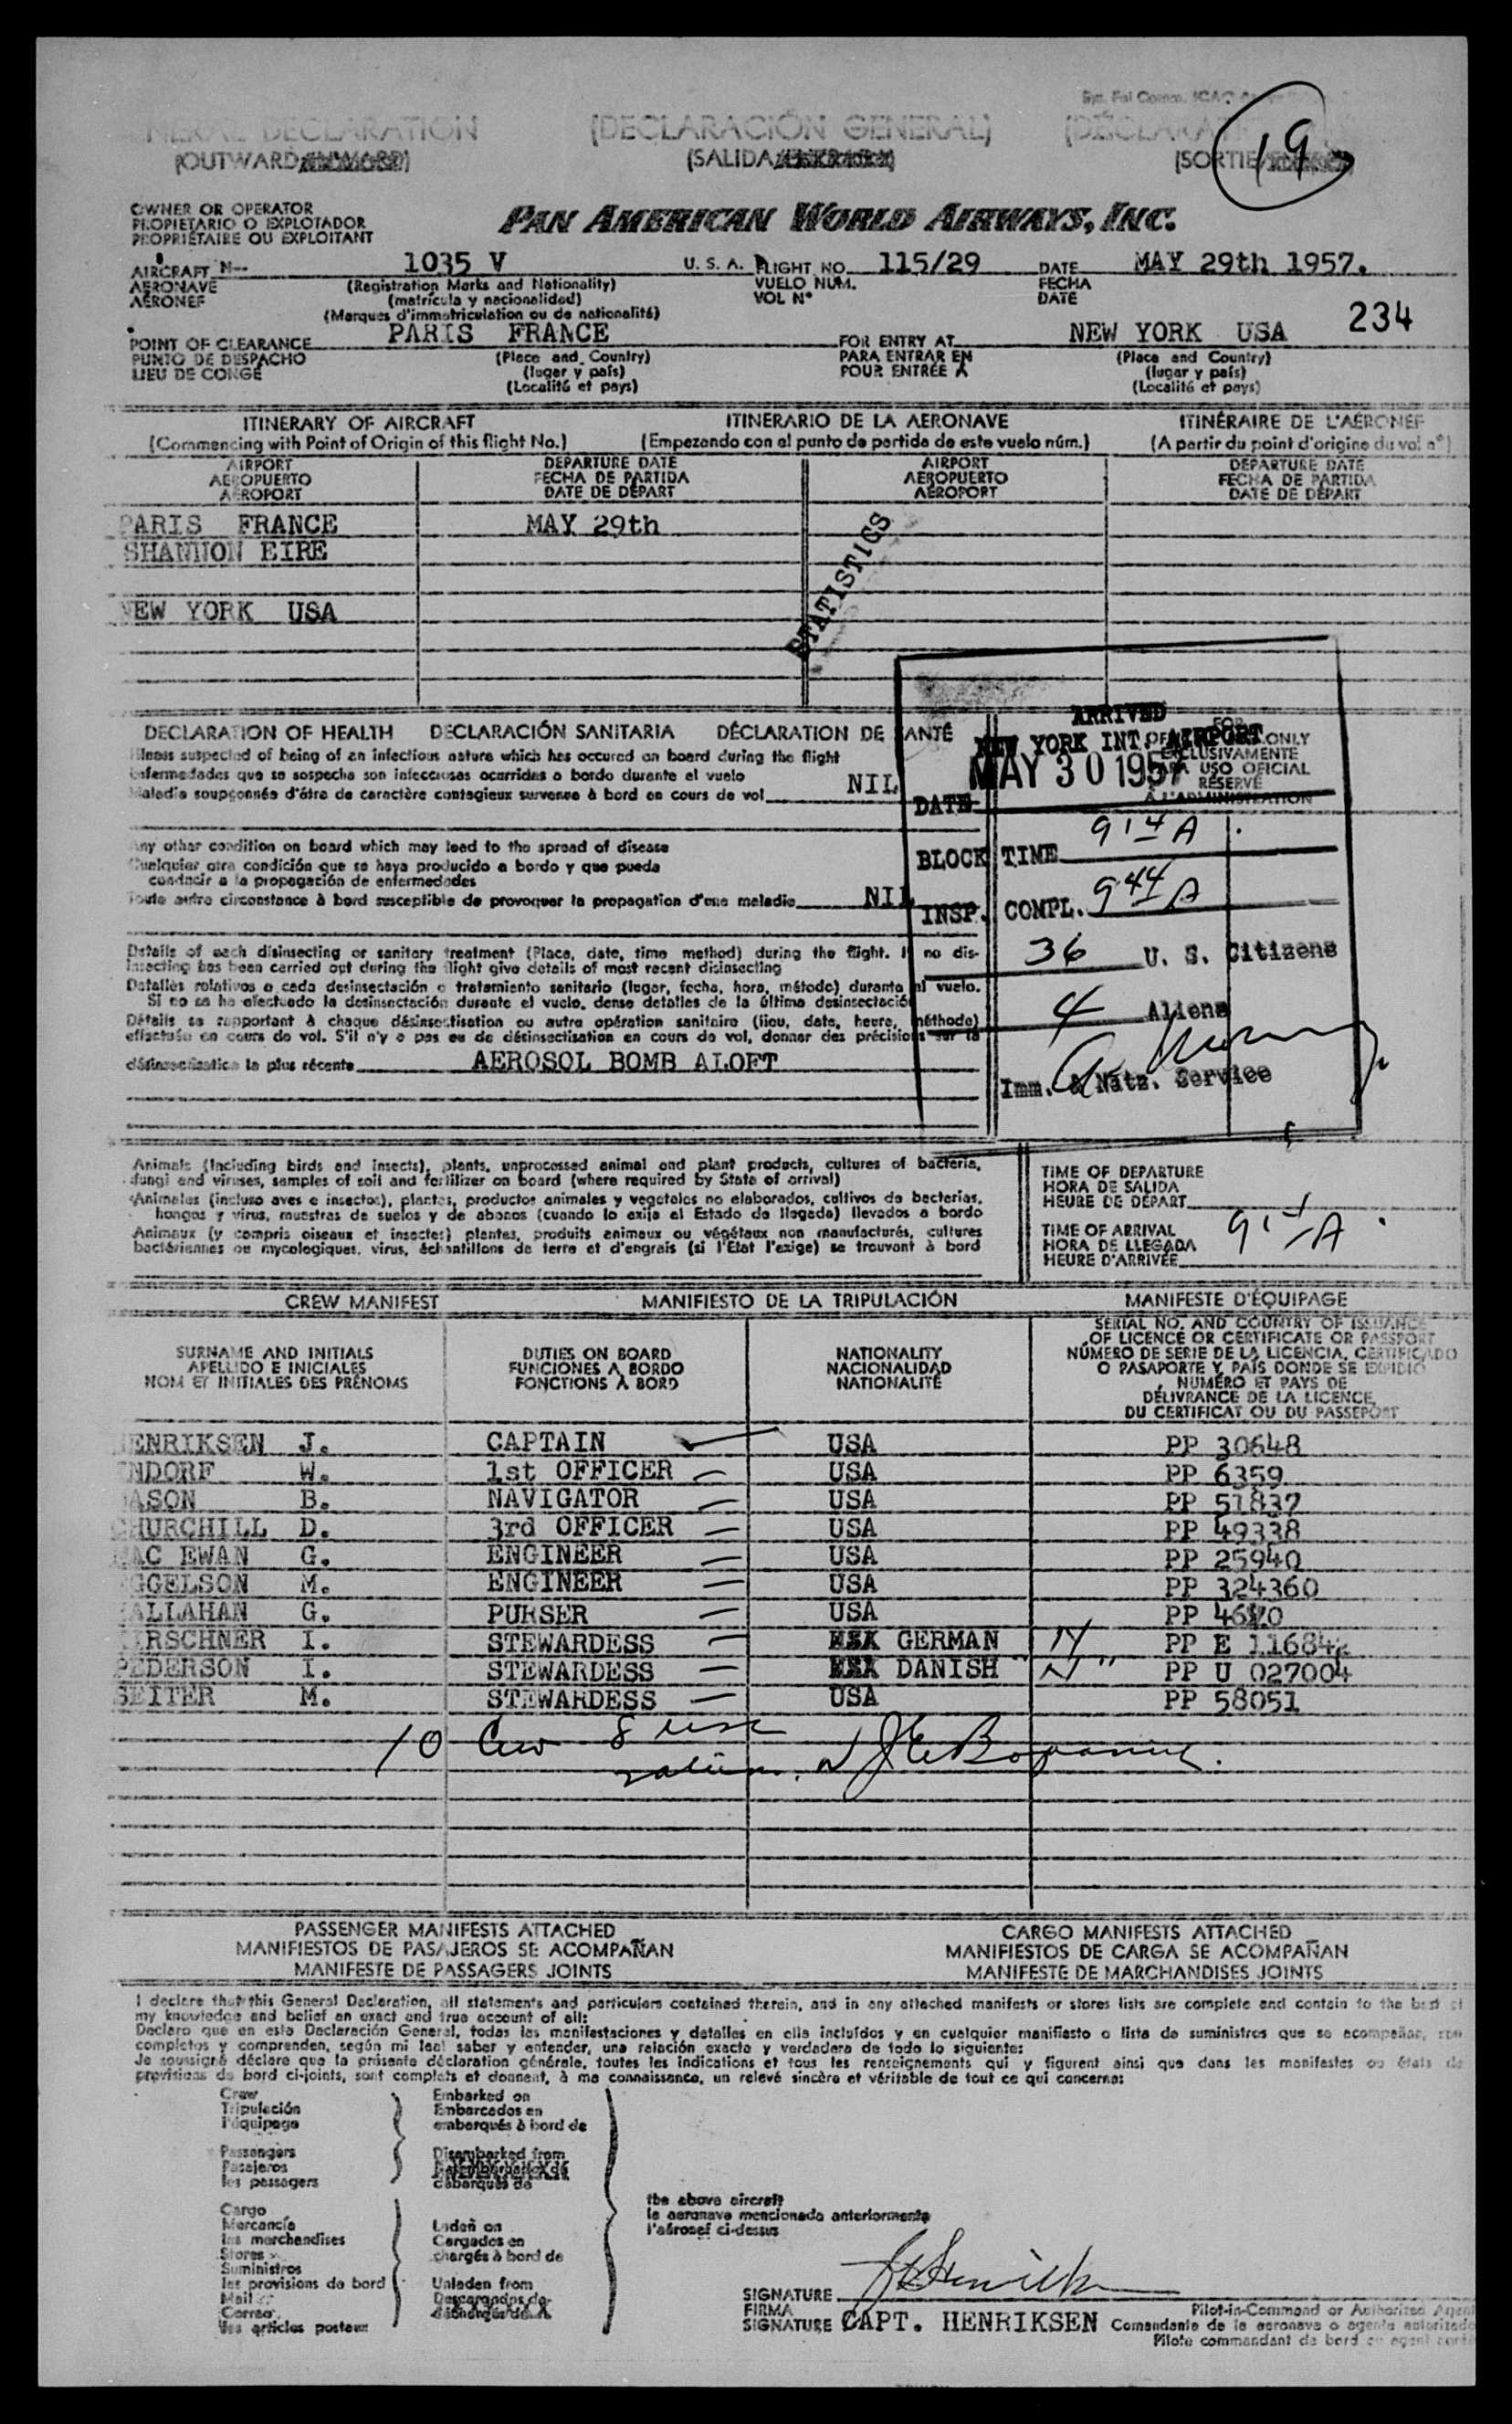 (DECLARACIÓN GENERAL)
(OUTWARD
(SALIDA
(SORTIE
19
OWNER OR OPERATOR
PROPIETARIO O EXPLOTADOR
PROPRIÉTAIRE OU EXPLOITANT
PAN AMERICAN WORLD AIRWAYS, INC.
AIRCRAFT N-- 1035 V U. S. A. FLIGHT NO. 115/29 DATE MAY 29th 1957.
AERONAVE (Registration Marks and Nationality) VUELO NUM. FECHA
AÉRONEF (matrícula y nacionalidad) VOL Nº DATE
(Marques d'immatriculation ou de nationalité)
234
POINT OF CLEARANCE PARIS FRANCE FOR ENTRY AT NEW YORK USA
PUNTO DE DESPACHO (Place and Country) PARA ENTRAR EN (Place and Country)
LIEU DE CONGÉ (lugar y país) POUR ENTRÉE A (lugar y país)
(Localité et pays) (Localité et pays)
ITINERARY OF AIRCRAFT ITINERARIO DE LA AERONAVE ITINÉRAIRE DE L'AÉRONEF
(Commencing with Point of Origin of this flight No.) (Empezando con el punto de partida de este vuelo núm.) (A partir du point d'origine du vol nº)
AIRPORT DEPARTURE DATE AIRPORT DEPARTURE DATE
AEROPUERTO FECHA DE PARTIDA AEROPUERTO FECHA DE PARTIDA
AÉROPORT DATE DE DÉPART AÉROPORT DATE DE DÉPART
PARIS FRANCE MAY 29th
SHANNON EIRE
NEW YORK USA
STATISTICS
DECLARATION OF HEALTH DECLARACIÓN SANITARIA DÉCLARATION DE SANTÉ
Illness suspected of being of an infectious nature which has occured on board during the flight
Enfermedades que se sospecha son infecciosas ocurridas a bordo durante el vuelo
Maladie soupçonnée d'être de caractère contagieux survenue à bord en cours de vol NIL
FOR
OFFICIAL USE ONLY
EXCLUSIVAMENTE
PARA USO OFICIAL
RÉSERVÉ
À L'ADMINISTRATION
ARRIVED
NEW YORK INT. AIRPORT
DATE MAY 30 1957
BLOCK TIME 9 14 A
INSP. COMPL. 9 44 A
36 U. S. Citizens
4 Aliens
Imm. & Natz. Service
Any other condition on board which may lead to the spread of disease
Cualquier otra condición que se haya producido a bordo y que pueda
conducir a la propagación de enfermedades
Toute autre circonstance à bord susceptible de provoquer la propagation d'une maladie NIL
Details of each disinsecting or sanitary treatment (Place, date, time method) during the flight. If no dis-
insecting has been carried out during the flight give details of most recent disinsecting
Detalles relativos a cada desinsectación o tratamiento sanitario (lugar, fecha, hora, método) durante el vuelo.
Si no se ha efectuado la desinsectación durante el vuelo, dense detalles de la última desinsectación
Détails se rapportant à chaque désinsectisation ou autre opération sanitaire (lieu, date, heure, méthode)
effectuée en cours de vol. S'il n'y a pas eu de désinsectisation en cours de vol, donner des précisions sur la
désinsectisation la plus récente AEROSOL BOMB ALOFT
Animals (Including birds and insects), plants, unprocessed animal and plant products, cultures of bacteria,
fungi and viruses, samples of soil and fertilizer on board (where required by State of arrival)
Animales (incluso aves e insectos), plantas, productos animales y vegetales no elaborados, cultivos de bacterias,
hongos y virus, muestras de suelos y de abonos (cuando lo exija el Estado de llegada) llevados a bordo
Animaux (y compris oiseaux et insectes) plantes, produits animaux ou végétaux non manufacturés, cultures
bactériennes ou mycologiques, virus, échantillons de terre et d'engrais (si l'Etat l'exige) se trouvant à bord
TIME OF DEPARTURE
HORA DE SALIDA
HEURE DE DÉPART
TIME OF ARRIVAL
HORA DE LLEGADA
HEURE D'ARRIVÉE 9 14 A
CREW MANIFEST MANIFIESTO DE LA TRIPULACIÓN MANIFESTE D'ÉQUIPAGE
SURNAME AND INITIALS
APELLIDO E INICIALES
NOM ET INITIALES DES PRÉNOMS
DUTIES ON BOARD
FUNCIONES A BORDO
FONCTIONS À BORD
NATIONALITY
NACIONALIDAD
NATIONALITÉ
SERIAL NO. AND COUNTRY OF ISSUANCE
OF LICENCE OR CERTIFICATE OR PASSPORT
NÚMERO DE SERIE DE LA LICENCIA, CERTIFICADO
O PASAPORTE Y PAÍS DONDE SE EXPIDIÓ
NUMÉRO ET PAYS DE
DÉLIVRANCE DE LA LICENCE,
DU CERTIFICAT OU DU PASSEPORT
HENRIKSEN J. CAPTAIN USA PP 30648
NDORF W. 1st OFFICER USA PP 6359
ASON B. NAVIGATOR USA PP 51837
CHURCHILL D. 3rd OFFICER USA PP 49338
MAC EWAN G. ENGINEER USA PP 25940
GGELSON M. ENGINEER USA PP 324360
ALLAHAN G. PURSER USA PP
ERSCHNER I. STEWARDESS GERMAN PP E 116842
PEDERSON I. STEWARDESS DANISH PP U 027004
SEITER M. STEWARDESS USA PP 58051
10 Crew 8 usc
PASSENGER MANIFESTS ATTACHED CARGO MANIFESTS ATTACHED
MANIFIESTOS DE PASAJEROS SE ACOMPAÑAN MANIFIESTOS DE CARGA SE ACOMPAÑAN
MANIFESTE DE PASSAGERS JOINTS MANIFESTE DE MARCHANDISES JOINTS
I declare that this General Declaration, all statements and particulars contained therein, and in any attached manifests or stores lists are complete and contain to the best of
my knowledge and belief an exact and true account of all:
Declaro que en esta Declaración General, todas las manifestaciones y detalles en ella incluídos y en cualquier manifiesto o lista de suministros que se acompañan, son
completos y comprenden, según mi leal saber y entender, una relación exacta y verdadera de todo lo siguiente:
Je soussigné déclare que la présente déclaration générale, toutes les indications et tous les renseignements qui y figurent ainsi que dans les manifestes ou états de
provisions de bord ci-joints, sont complets et donnent, à ma connaissance, un relevé sincère et véritable de tout ce qui concerne:
Crew
Tripulación
l'équipage
Passengers
Pasajeros
les passagers
Embarked on
Embarcados en
embarqués à bord de
Disembarked from
débarqués de
Cargo
Mercancía
les marchandises
Stores
Suministros
les provisions de bord
Mail
Correo
les articles postaux
Laden on
Cargados en
chargés à bord de
Unladen from
the above aircraft
la aeronave mencionada anteriormente
l'aéronef ci-dessus
SIGNATURE
FIRMA
SIGNATURE CAPT. HENRIKSEN
Pilot-in-Command or Authorized Agent
Comandante de la aeronave o agente autorizado
Pilote commandant de bord ou agent